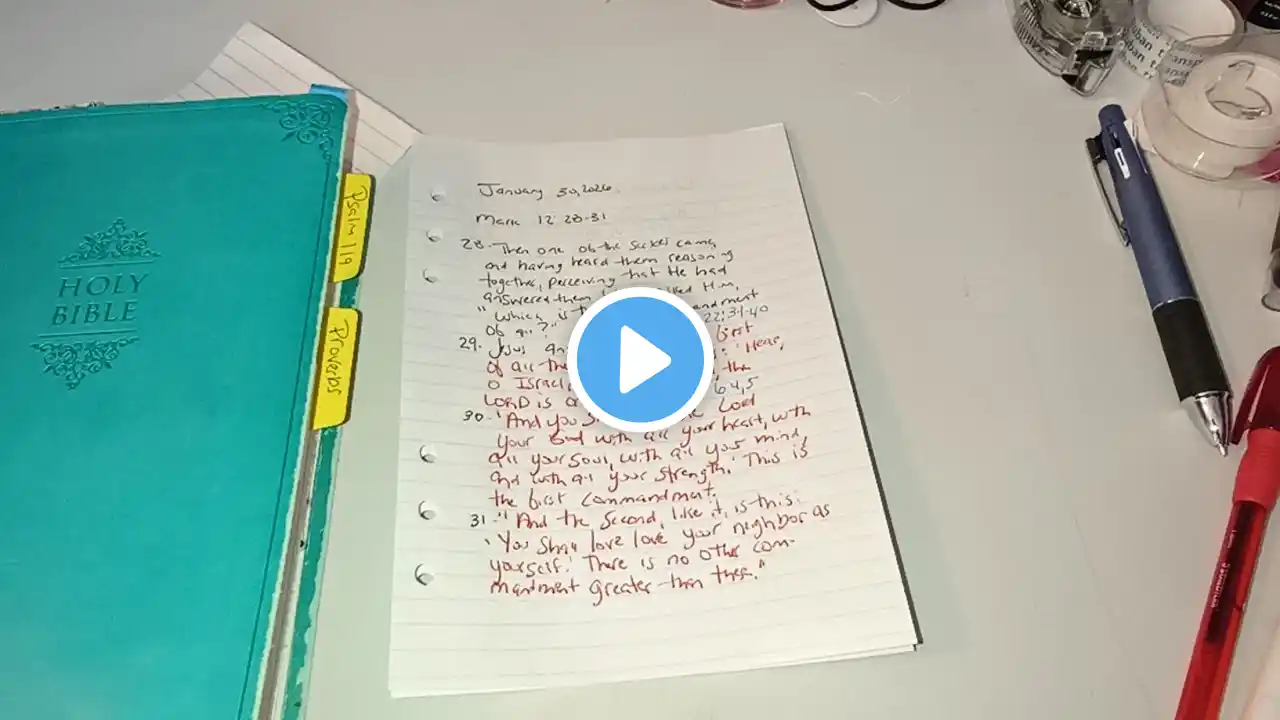 HOLY
BIBLE
Psalm 119
Proverbs
January 30, 2026
Mark 12:28-31
28. Then one of the scribes came,
and having heard them reasoning
together, perceiving that He had
answered them Him,
"Which is mandment
of all?" 22:34-40
29. Jesus first
of all the "Hear,
O Israel, the
LORD is 6:4,5
30. 'And you Lord
your God with all your heart, with
all your soul, with all your mind,
and with all your strength.' This is
the first commandment.
31. "And the second, like it, is this:
'You shall love love your neighbor as
yourself.' There is no other com-
mandment greater than these."